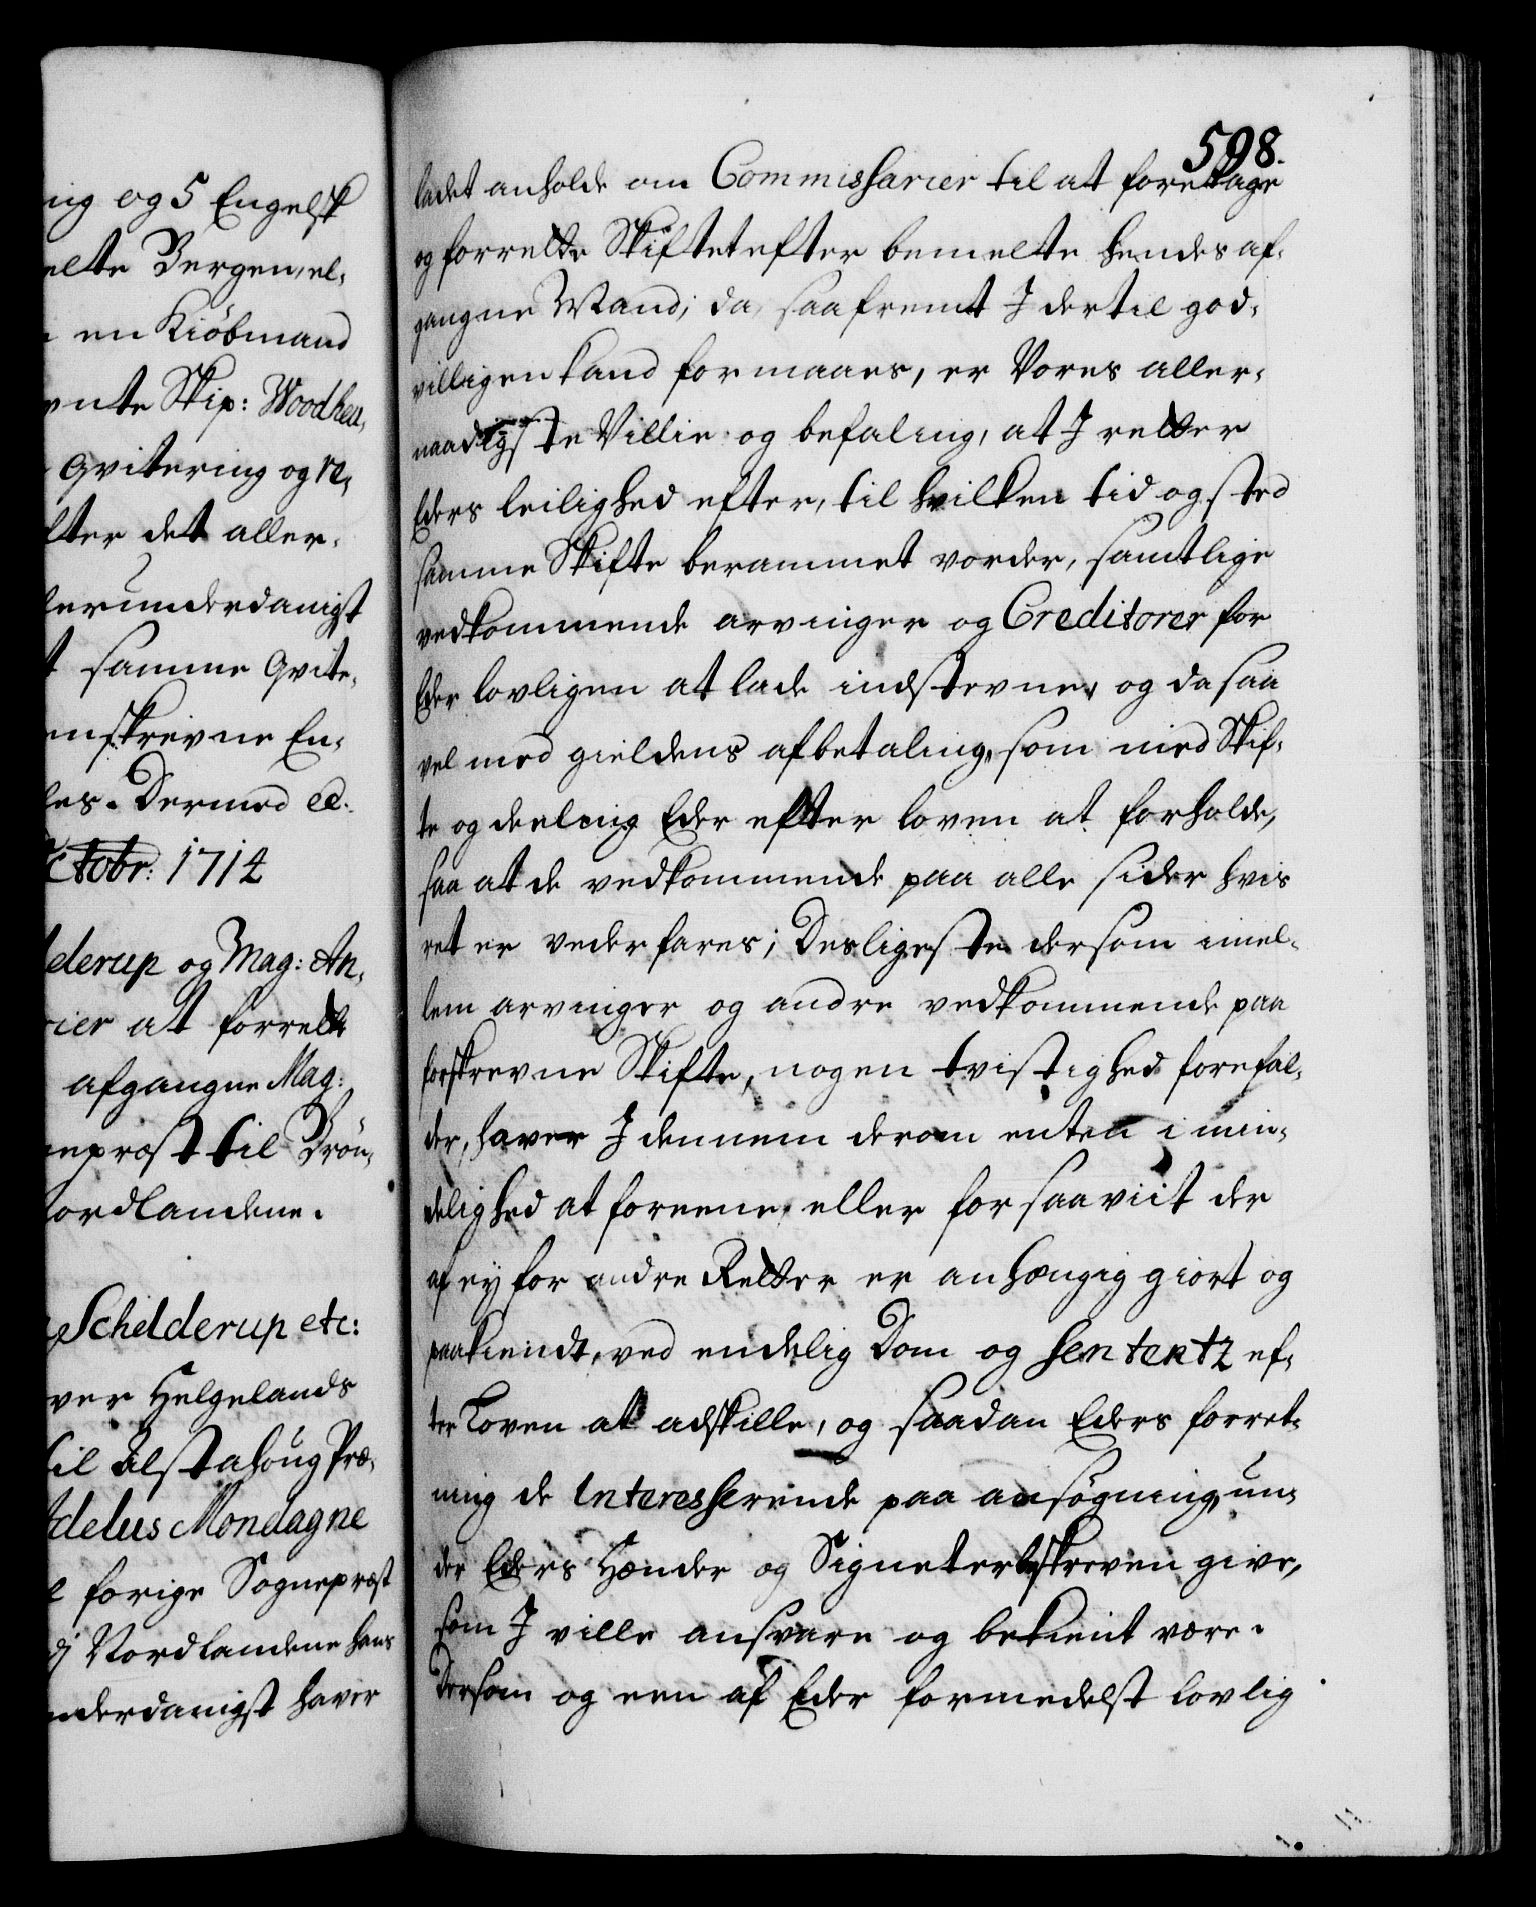 ig og 5 Engelsk
elte Bergen, el-
en Kiöbmand
ente Skip: Woodhea,
qvitering og re,
fter det aller-
lerunderdanigst
t samme qvite-
enskrevne En-
les. Dermed etc:
Octobr: 1714
elderup og Mag: An,
rier at forrette
afgangne Mag:
nepræst til Brön-
Nordlandene.
Schelderup etc:
ver Helgelands
til Alstahoug Præ-
delus Mondagne
e forige Sognepræst
dj Nordlandene hans
nderdanigst haver
598.
ladet anholde om Commissarier til at foretage
og forrette Skiftet efter bemelte hendes af-
gangne Mand; da, saafremt J dertil god-
villigen kand formaaes, er Vores aller-
naadigste Villie og befaling, at J retter
Eders leilighed efter, til hvilken tid og sted
samme Skifte berammet vorder, samtlige
vedkommende arvinger og Creditorer for
Eder lovligen at lade indstevne, og da saa
vel med gieldens afbetaling, som med Skif-
te og deeling Eder efter loven at forholde,
saa at de vedkommende paa alle sider hvis
ret er vederfares; Desligeste dersom imel-
lem arvinger og andre vedkommende paa
forskrevne Skifte, nogen tvistighed forefal-
der, haver J dennem derom enten i min-
delighed at foreene, eller forsaaviit der
af ey for andre Retter er anhængig giort og
paakiendt, ved endelig Dom og Sententz ef-
ter Loven at adskille, og saadan Eders forret-
ning de Interesserende paa ansøgning, un-
der Eders Hænder og Signeter beskreven give,
som J ville ansvare og bekient være.
Dersom og een af Eder formedelst lovlig